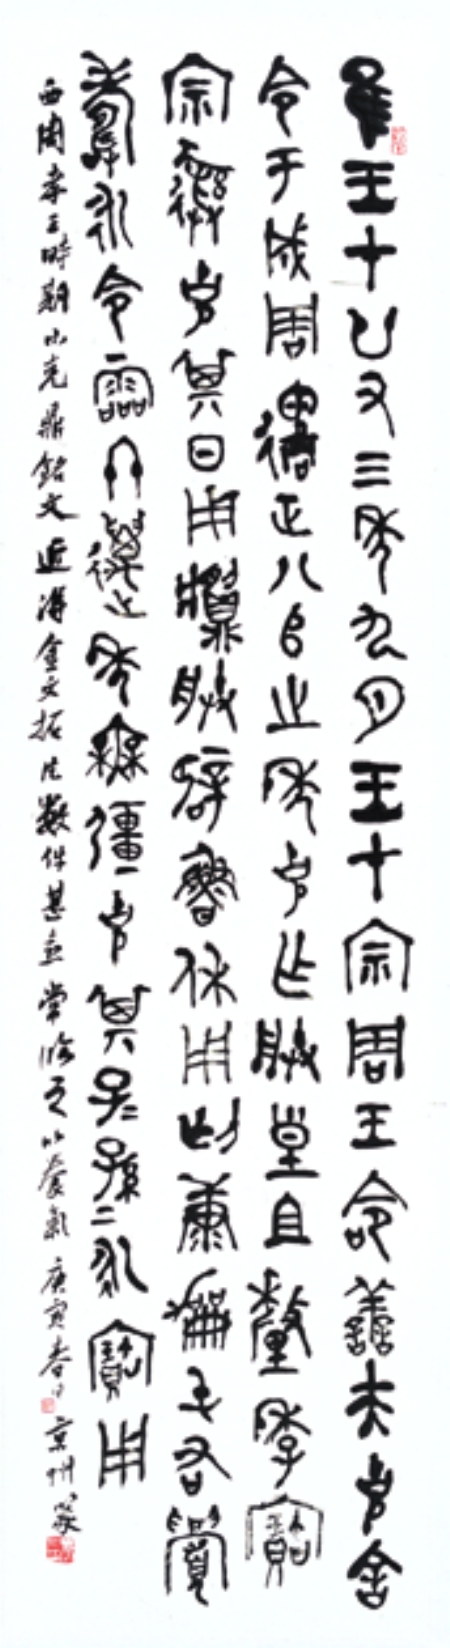 隹王才廿又三年九月王才宗周王命善夫克舍
令于成周遹正八𠂤之年克乍朕皇且釐季寶
宗彝克其日用𩰫朕辟魯休用匄康勵屯右眉
壽永令霝冬萬年無疆克其子=孫=永寶用
西周孝王時期小克鼎銘文近得金文拓片數件甚喜常臨之以養氣庚寅春日京州篆